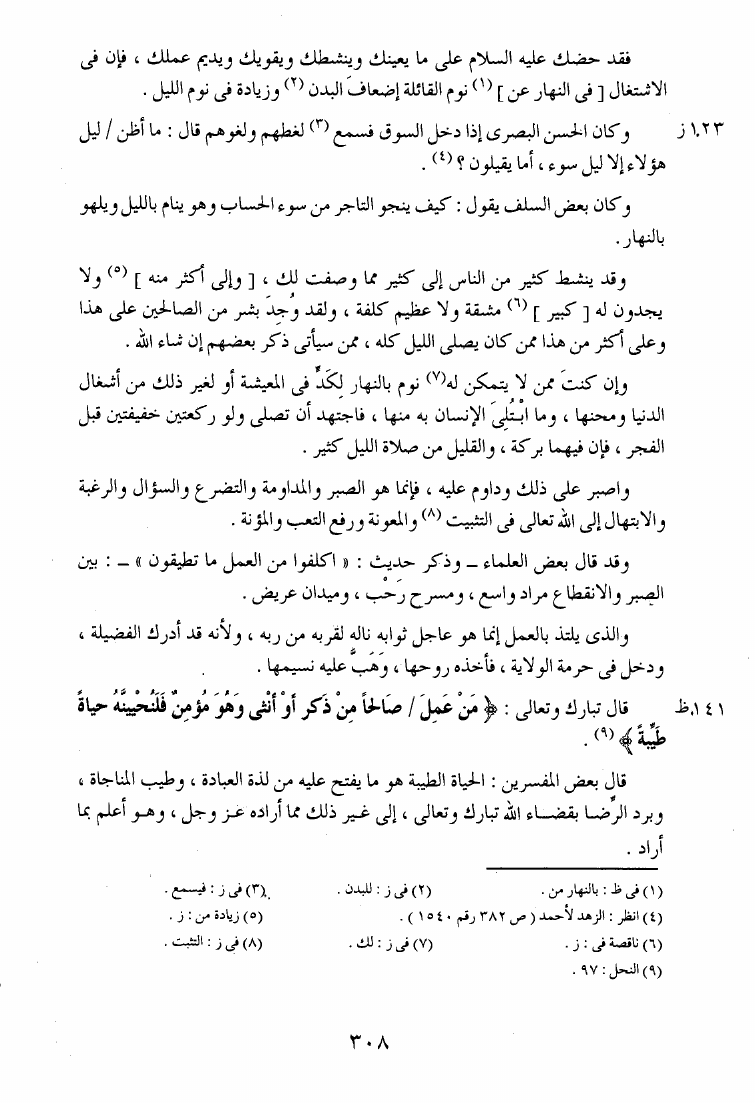 فقد حضك عليه السلام على ما يعينك وينشطك ويقويك ويديم عملك ، فإن فى
الاشتغال [ فى النهار عن ] (١) نوم القائلة إضعافَ البدن (٢) وزيادة فى نوم الليل .
١٠٢٣ ز
وكان الحسن البصرى إذا دخل السوق فسمع (٣) لغطهم ولغوهم قال : ما أظن / ليل
هؤلاء إلا ليل سوء ، أما يقيلون ؟ (٤) .
وكان بعض السلف يقول : كيف ينجو التاجر من سوء الحساب وهو ينام بالليل ويلهو
بالنهار .
وقد ينشط كثير من الناس إلى كثير مما وصفت لك ، [ وإلى أكثر منه ] (٥) ولا
يجدون له [ كبير ] (٦) مشقة ولا عظيم كلفة ، ولقد وُجِدَ بشر من الصالحين على هذا
وعلى أكثر من هذا ممن كان يصلى الليل كله ، ممن سيأتى ذكر بعضهم إن شاء الله .
وإن كنتَ ممن لا يتمكن له(٧) نوم بالنهار لِكَدٍّ فى المعيشة أو لغير ذلك من أشغال
الدنيا ومحنها ، وما ابْتُلِىَ الإنسان به منها ، فاجتهد أن تصلى ولو ركعتين خفيفتين قبل
الفجر ، فإن فيهما بركة ، والقليل من صلاة الليل كثير .
واصبر على ذلك وداوم عليه ، فإنما هو الصبر والمداومة والتضرع والسؤال والرغبة
والابتهال إلى الله تعالى فى التثبيت (٨) والمعونة ورفع التعب والمؤنة .
وقد قال بعض العلماء ــ وذكر حديث : « اكلفوا من العمل ما تطيقون » ــ : بين
الصبر والانقطاع مراد واسع ، ومسرح رَحْب ، وميدان عريض .
والذى يلتذ بالعمل إنما هو عاجل ثوابه ناله لقربه من ربه ، ولأنه قد أدرك الفضيلة ،
ودخل فى حرمة الولاية ، فأخذه روحها ، وَهَبَّ عليه نسيمها .
١٤١.ظ
قال تبارك وتعالى : ﴿ مَنْ عَمِلَ / صَالحاً مِنْ ذَكر أوْ أنْثى وَهُوَ مُؤمِنٌ فَلَنُحْيينَّهُ حياةً
طَيِّبةً ﴾ (٩) .
قال بعض المفسرين : الحياة الطيبة هو ما يفتح عليه من لذة العبادة ، وطيب المناجاة ،
وبرد الرِّضا بقضاء الله تبارك وتعالى ، إلى غير ذلك مما أراده عز وجل ، وهو أعلم بما
أراد .
(١) فى ظ : بالنهار من . (٢) فى ز : للبدن . (٣) فى ز : فيسمع .
(٤) انظر : الزهد لأحمد ( ص ٣٨٢ رقم ١٥٤٠ ) . (٥) زيادة من : ز .
(٦) ناقصة فى : ز . (٧) فى ز : لك . (٨) فى ز : التثبت .
(٩) النحل : ٩٧ .
٣٠٨